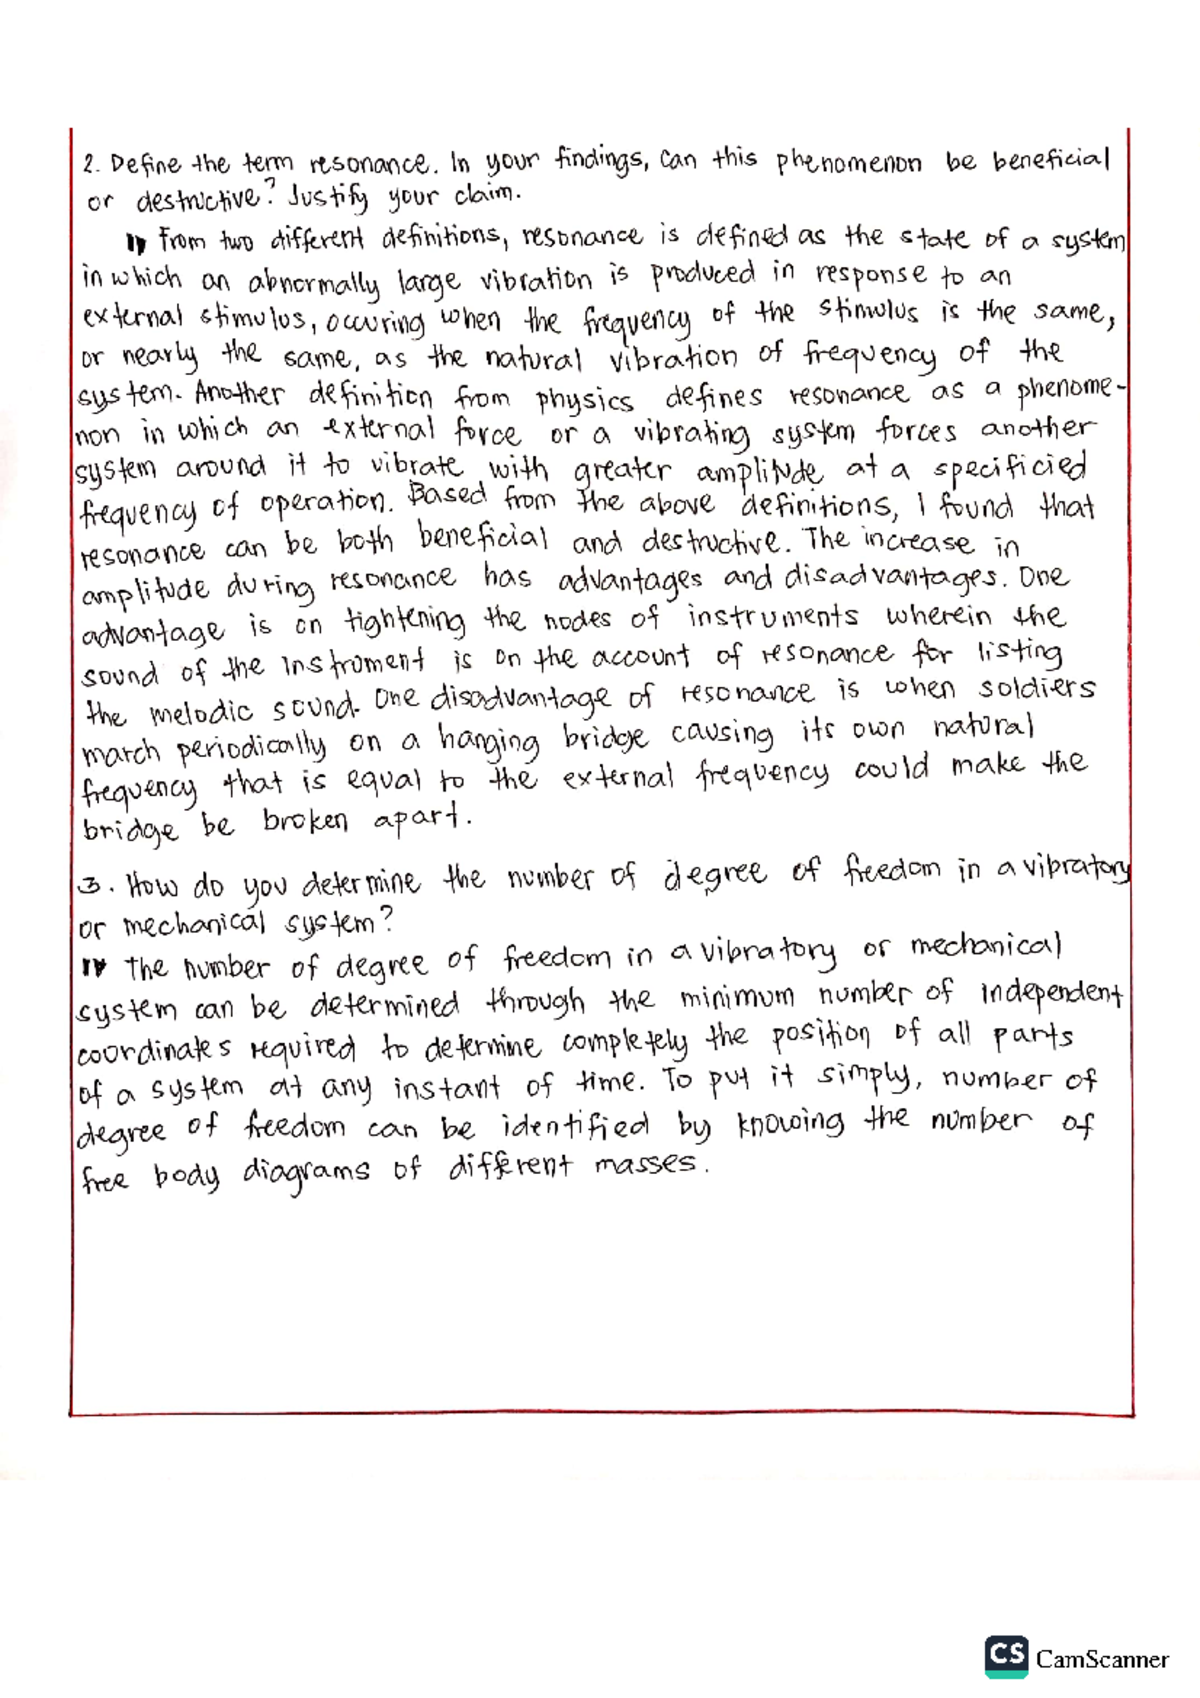 2. Define the term resonance. In your findings, can this phenomenon be beneficial
or destructive? Justify your claim.
From two different definitions, resonance is defined as the state of a system
in which an abnormally large vibration is produced in response to an
external stimulus, occuring when the frequency of the stimulus is the same,
or nearly the same, as the natural vibration of frequency of the
system. Another definition from physics defines resonance as a phenome-
non in which an external force or a vibrating system forces another
system around it to vibrate with greater amplitude at a specificied
frequency of operation. Based from the above definitions, I found that
resonance can be both beneficial and destructive. The increase in
amplitude during resonance has advantages and disadvantages. One
advantage is on tightening the nodes of instruments wherein the
sound of the instrument is on the account of resonance for listing
the melodic sound. One disadvantage of resonance is when soldiers
march periodically on a hanging bridge causing its own natural
frequency that is equal to the external frequency could make the
bridge be broken apart.
3. How do you determine the number of degree of freedom in a vibratory
or mechanical system?
The number of degree of freedom in a vibratory or mechanical
system can be determined through the minimum number of independent
coordinates required to determine completely the position of all parts
of a system at any instant of time. To put it simply, number of
degree of freedom can be identified by knowing the number of
free body diagrams of different masses.
CS CamScanner